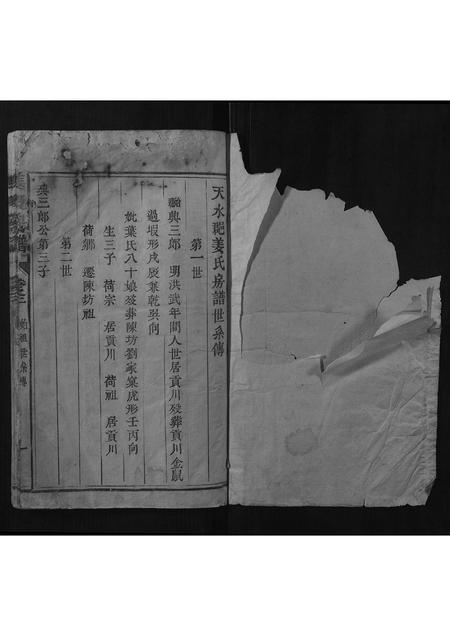 天水郡姜氏房譜世系傳
第一世
典三郎 明洪武年間人世居貢川歿葬貢川金鼠
過塅形戌辰兼乾巽向
妣葉氏八十娘歿葬陳坊劉家窠虎形壬丙向
生三子 荷宗 居貢川 荷祖 居貢川
荷鄉 遷陳坊祖
第二世
典三郎公第三子
荷祖世系傳
一